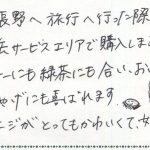 長野へ旅行へ行った際
サービスエリアで購入しまし
ーにも緑茶にも合い、お
やげにも喜ばれます。
ージがとってもかわいくて、女